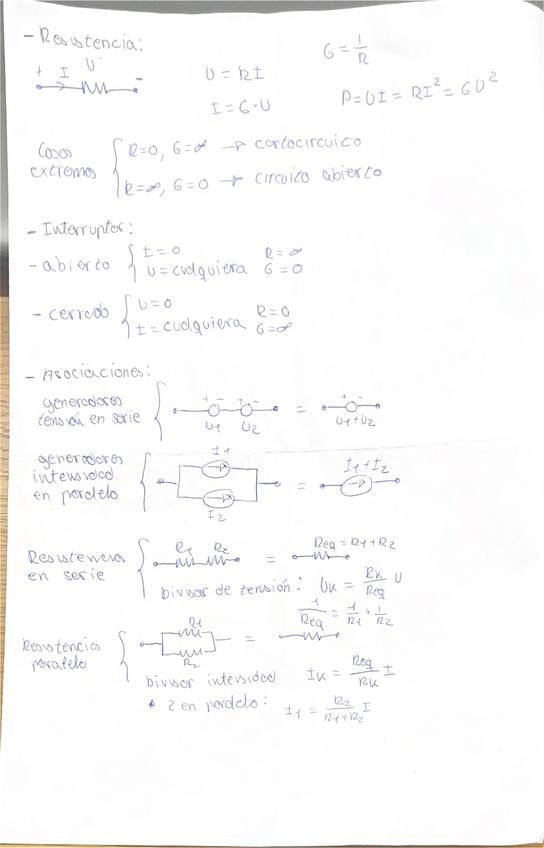 - Resistencia:
G = 1/R
+ I U -
U = RI
I = G·U
P = UI = RI² = GU²
Casos extremos
R=0, G=∞ → cortocircuito
R=∞, G=0 → circuito abierto
- Interruptor:
- abierto
I=0 R=∞
U=cualquiera G=0
- cerrado
U=0 R=0
I=cualquiera G=∞
- Asociaciones:
generadores
tensión en serie
+ - + - = + -
U1 U2 U1+U2
generadores
intensidad
en paralelo
I1
I2
= I1+I2
Resistencias
en serie
R1 R2 = Req = R1+R2
Divisor de tensión: UK = RK/Req U
Resistencias
paralelo
R1
R2
= 1/Req = 1/R1 + 1/R2
Divisor intensidad IK = Req/RK I
* 2 en paralelo: I1 = R2/R1+R2 I